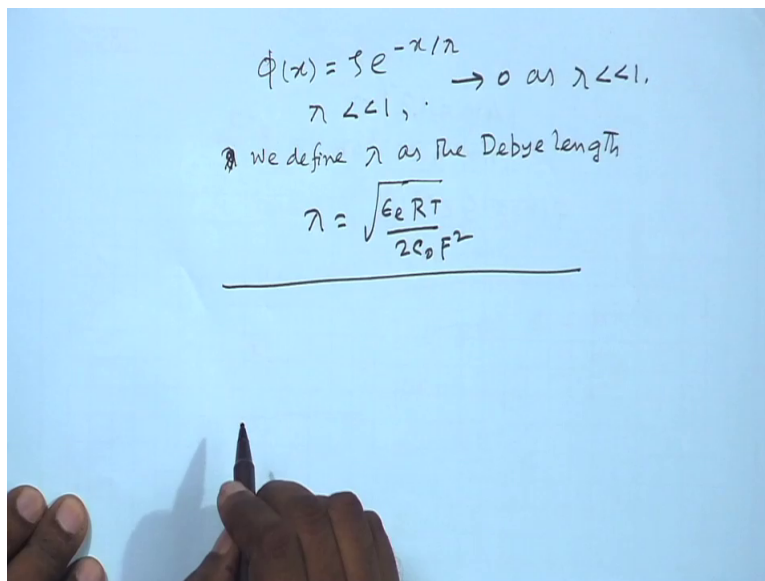 ϕ(x) = ζe^{-x/λ} → 0 as λ<<1.
λ <<1, .
we define λ as the Debye length
λ = √(ϵe RT / 2C₀F²)